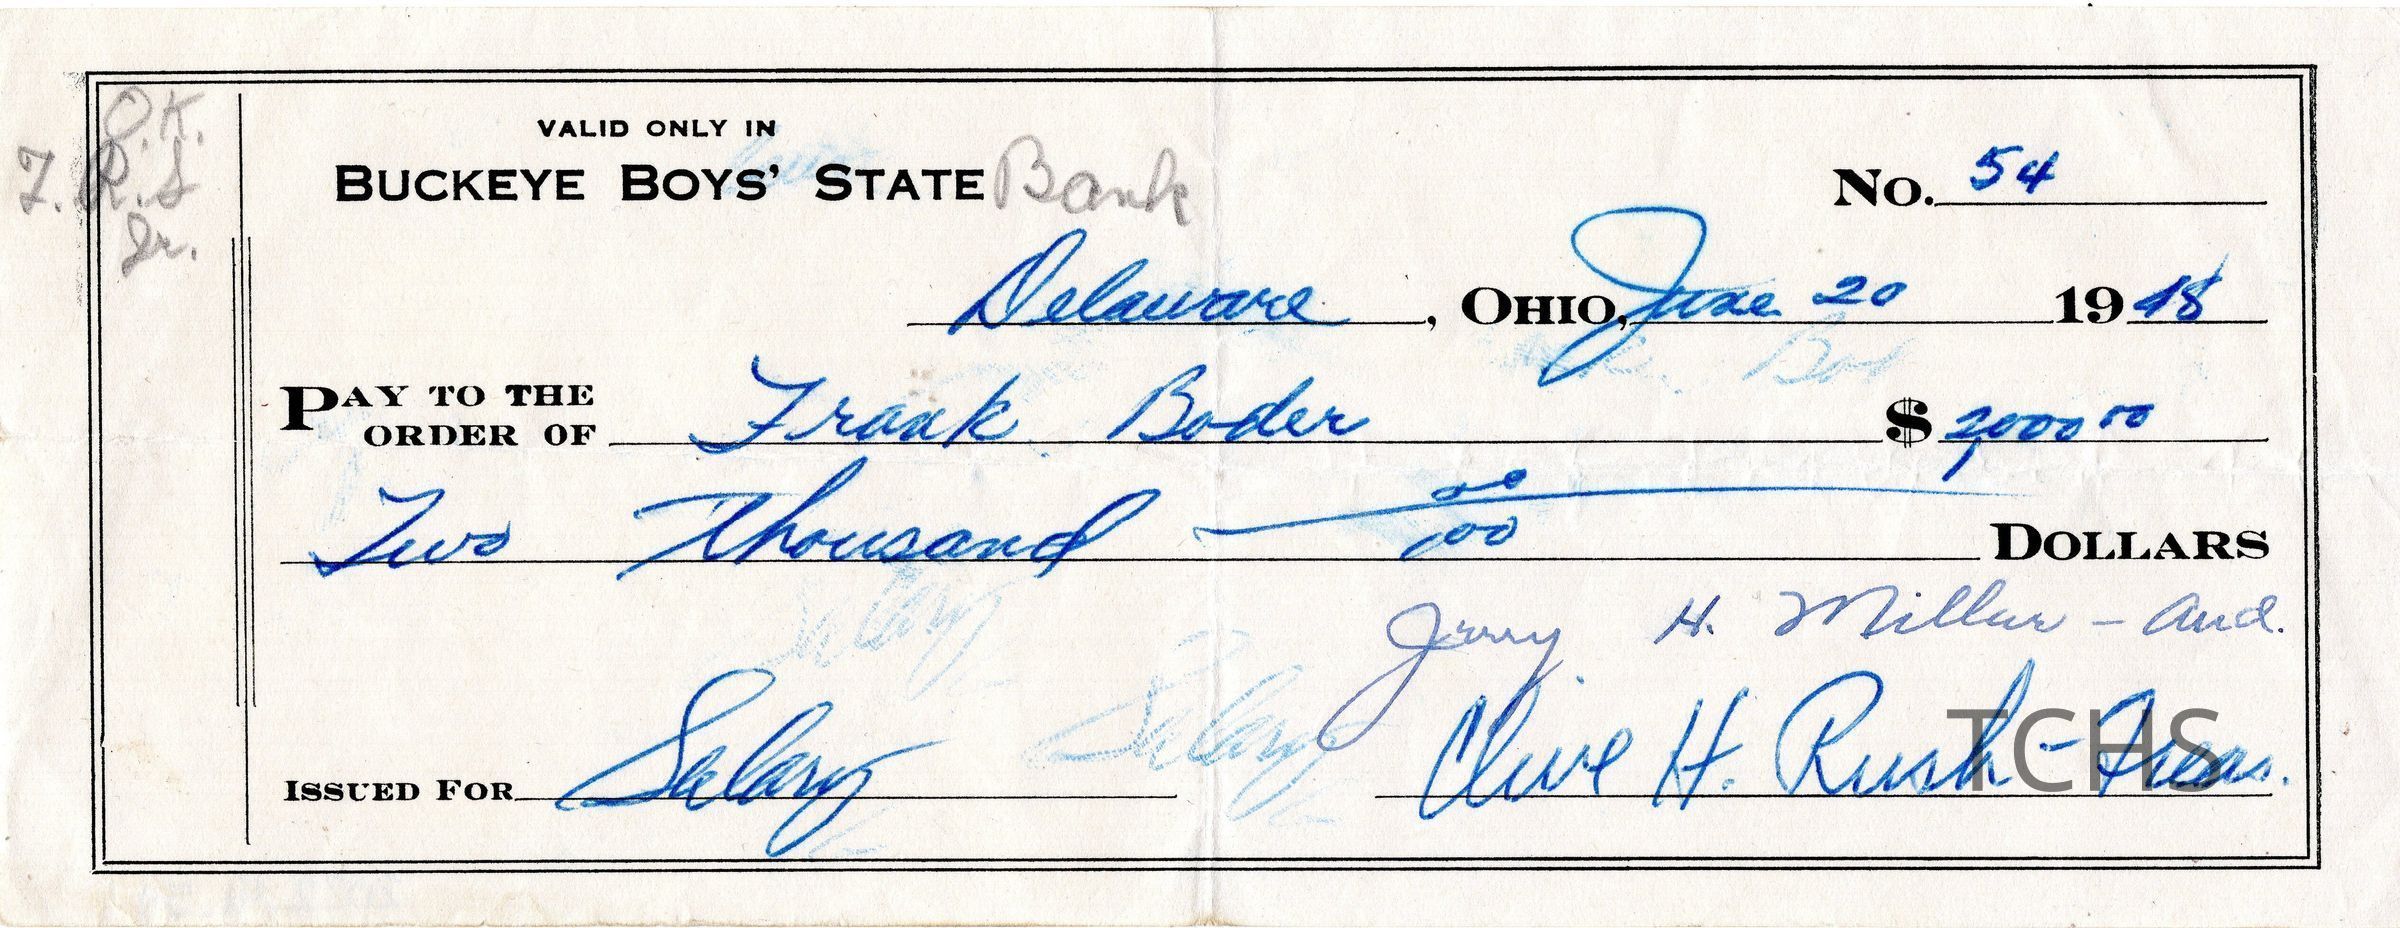 O.K.
F.R.S.
Jr.
VALID ONLY IN
BUCKEYE BOYS' STATE Bank
No. 54
Delaware, OHIO, June 20 1948
PAY TO THE
ORDER OF Frank Boder $ 2000 00
Two Thousand 00/00 DOLLARS
Jerry H. Miller - Aud.
ISSUED FOR Salary Clive H. Rush - Treas.
TCHS